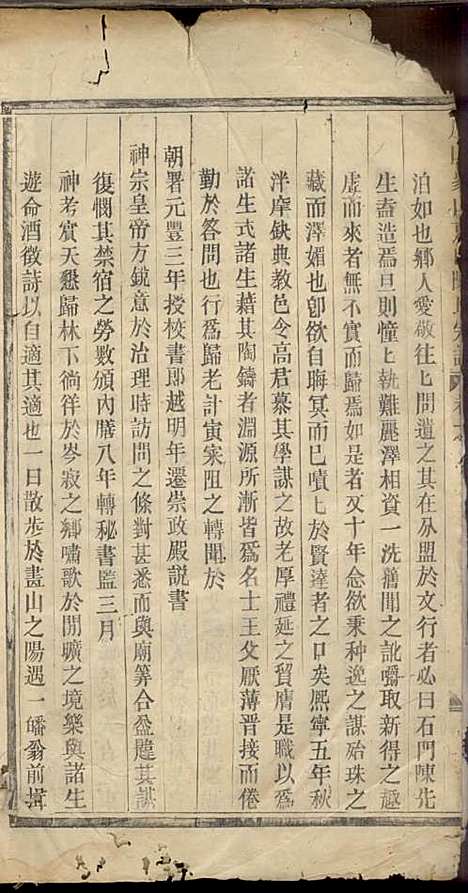 泊如也鄉人愛敬往ヒ問遺之其在夙盟於文行者必曰石門陳先
生盍造焉旦則憧ヒ執難麗澤相資一洗舊聞之訛嚼取新得之趣
虛而來者無不實而歸焉如是者又十年念欲秉种逸之謀殆珠之
藏而澤媚也卽欲自晦冥而已嘖ヒ於賢達者之口矣熙寧五年秋
泮庠缺典教邑令高君慕其學謀之故老厚禮延之貿膺是職以爲
諸生式諸生藉其陶鑄者淵源所漸皆爲名士王父厭薄晉接而倦
勤於答問也行爲歸老計寅寀阻之轉聞於
朝署元豐三年授校書郎越明年遷崇政殿說書
神宗皇帝方銳意於治理時訪問之條對甚悉而與廟筭合益韙其議
復憫其禁宿之勞數頒內膳八年轉秘書監三月
神考賓天懇歸林下徜徉於岑寂之鄉嘯歌於閒曠之境樂與諸生
遊命酒徵詩以自適其適也一日散步於畫山之陽遇一皤翁前揖